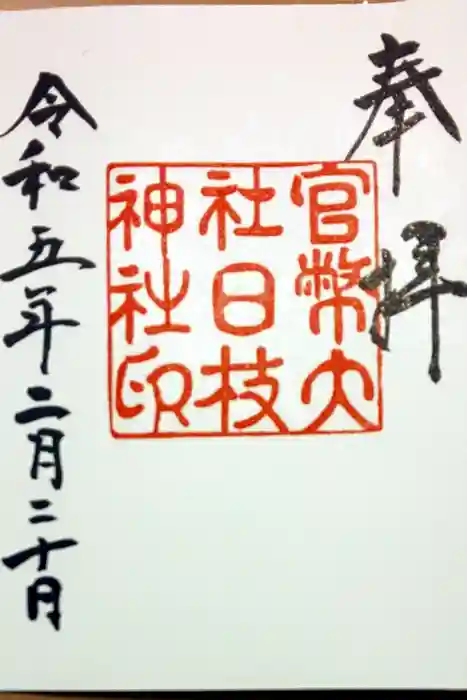 奉拝
官幣大
社日枝
神社印
令和五年二月二十日